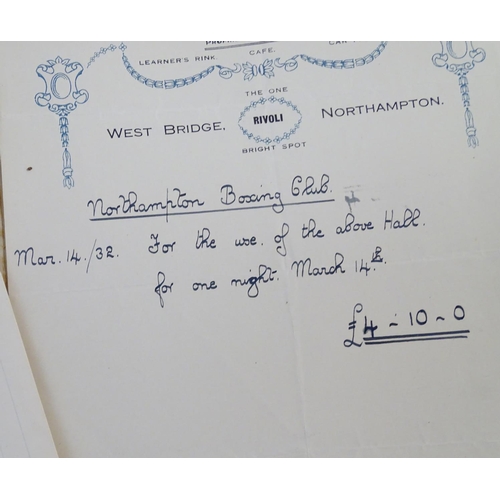 LEARNER'S RINK.
CAFE.
THE ONE
WEST BRIDGE, RIVOLI NORTHAMPTON.
BRIGHT SPOT
Northampton Boxing Club.
Mar. 14./32. For the use. of the above Hall.
for one night. March 14th.
£4-10-0